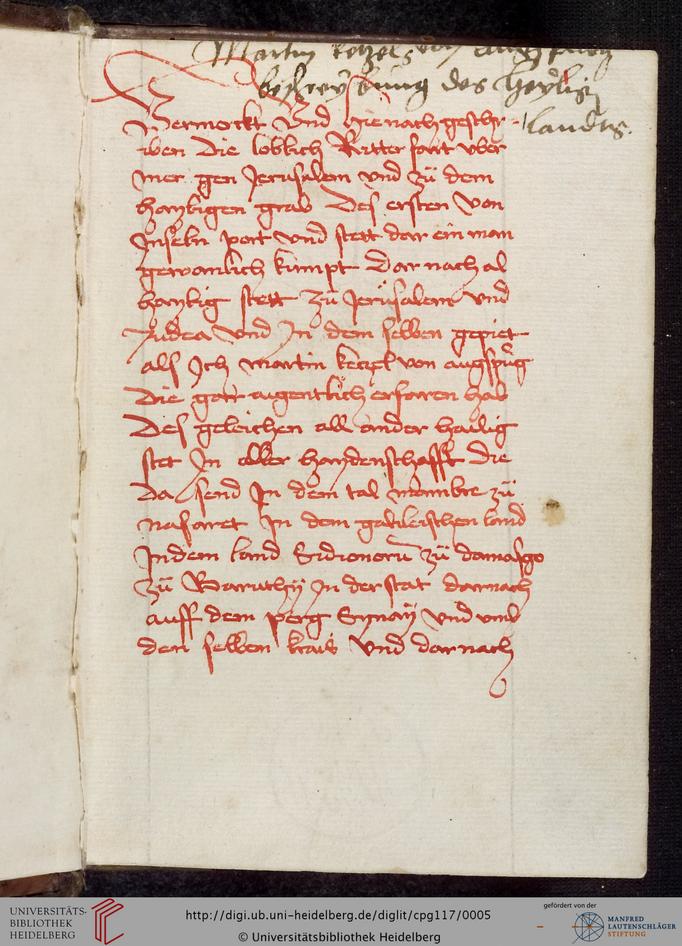 Martin ketzels von augspurg
beschreybung des heylign
landts.
Vermerckt Vnd hienach geschr-
iben die loblich Ritterfart vber
mer gen Jerusalem vnd zü dem
hayligen grab Des ersten von
Jnseln port vnd stett dar ein man
gewonlich kumpt Dar nach al
haylig stett zü Jerusalem vnd
Judea vnd Jn dem selben gepiet
als Jch martin keczel von augspurg
die gar aigentlich erfaren hab
Des geleichen all ander hailig
stet Jn aller haydenschafft die
Da send Jn dem tal mambre zü
nasaret Jn dem galileischen land
Jn dem land Sidionoru zü damasgo
zü Baruthÿ Jn der stat darnach
auff dem perg Synaÿ vnd vmb
den selben krais vnd darnach
UNIVERSITÄTS-
BIBLIOTHEK
HEIDELBERG
http://digi.ub.uni-heidelberg.de/diglit/cpg117/0005
© Universitätsbibliothek Heidelberg
gefördert von der
MANFRED
LAUTENSCHLÄGER
STIFTUNG